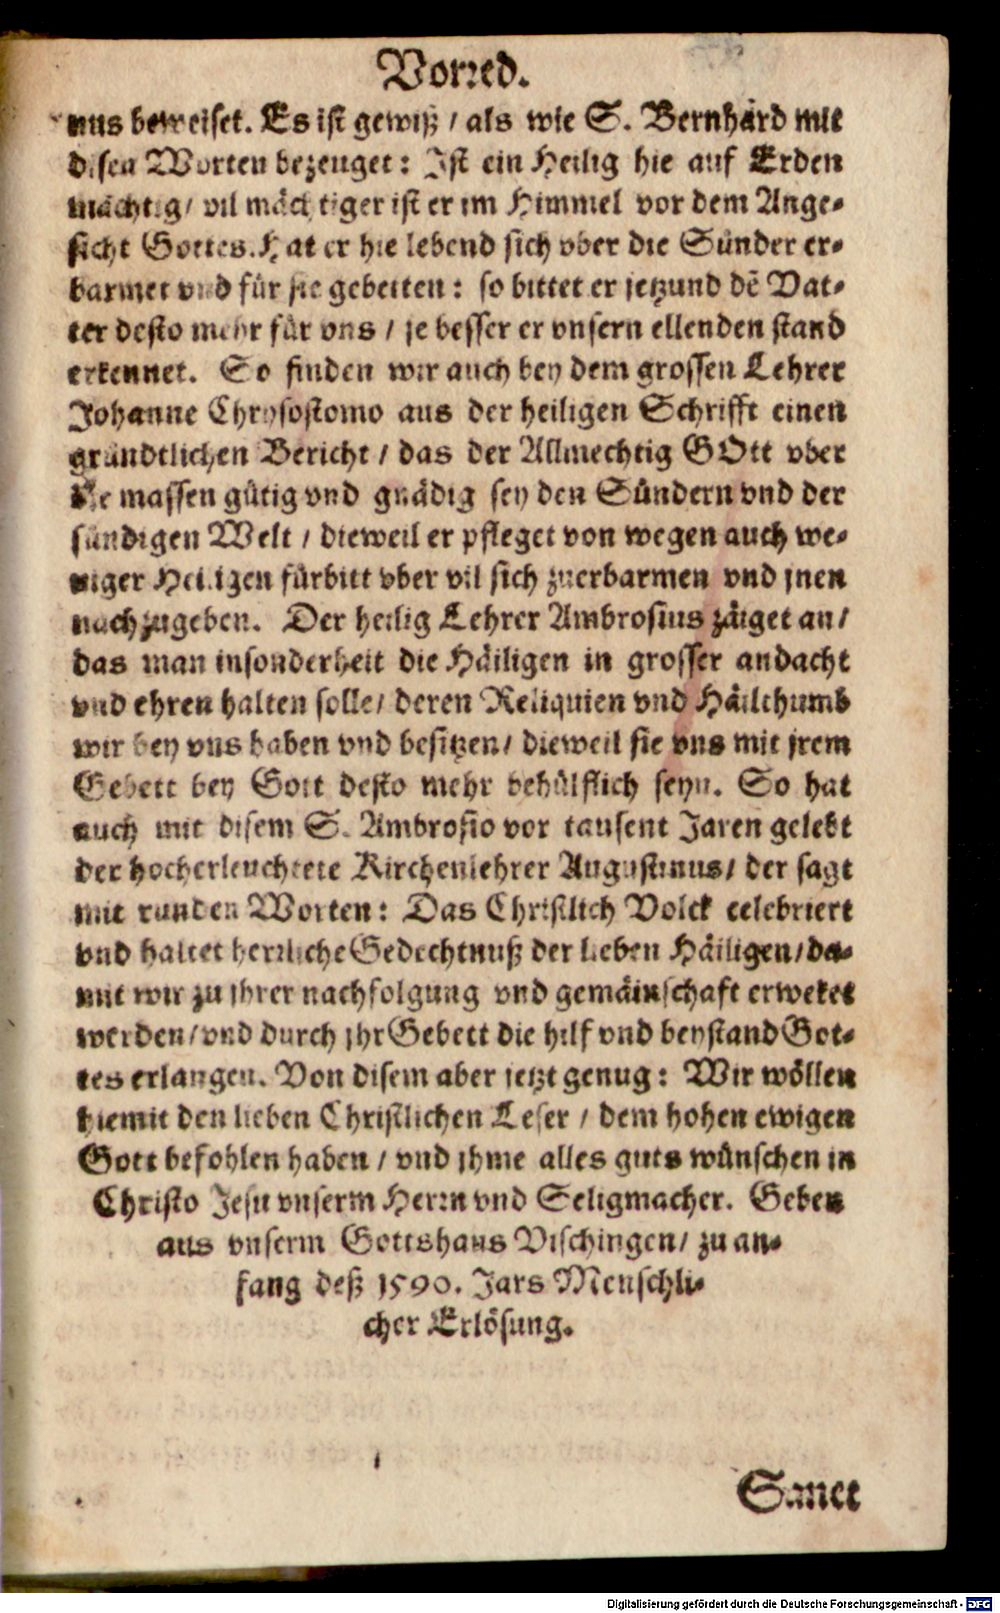 Vorred.
nus beweiset. Es ist gewiß / als wie S. Bernhard mit
disen Worten bezeuget: Ist ein Heilig hie auf Erden
mächtig / vil mächtiger ist er im Himmel vor dem Ange-
sicht Gottes. Hat er hie lebend sich vber die Sünder er-
barmet vnd für sie gebetten: so bittet er jetzund dẽ Vat-
ter desto mehr für vns / je besser er vnsern ellenden stand
erkennet. So finden wir auch bey dem grossen Lehrer
Johanne Chrysostomo aus der heiligen Schrifft einen
gründtlichen Bericht / das der Allmechtig GOtt vber
die massen gütig vnd gnädig sey den Sündern vnd der
sündigen Welt / dieweil er pfleget von wegen auch we-
niger Heiligen fürbitt vber vil sich zuerbarmen vnd jnen
nachzugeben. Der heilig Lehrer Ambrosius zäiget an /
das man insonderheit die Häiligen in grosser andacht
vnd ehren halten solle / deren Reliquien vnd Häilthumb
wir bey vns haben vnd besitzen / dieweil sie vns mit jrem
Gebett bey Gott desto mehr behülflich seyn. So hat
auch mit disem S. Ambrosio vor tausent Jaren gelebt
der hocherleuchtete Kirchenlehrer Augustinus / der sagt
mit runden Worten: Das Christlich Volck celebriert
vnd haltet herrliche Gedechtnuß der lieben Häiligen / da-
mit wir zu ihrer nachfolgung vnd gemäinschaft erweket
werden / vnd durch jhr Gebett die hilf vnd beystand Got-
tes erlangen. Von disem aber jetzt genug: Wir wöllen
hiemit den lieben Christlichen Leser / dem hohen ewigen
Gott befohlen haben / vnd jhme alles guts wünschen in
Christo Jesu vnserm Herrn vnd Seligmacher. Geben
aus vnserm Gottshaus Vischingen / zu an-
fang deß 1590. Jars Menschli-
cher Erlösung.
Sanct
Digitalisierung gefördert durch die Deutsche Forschungsgemeinschaft - DFG